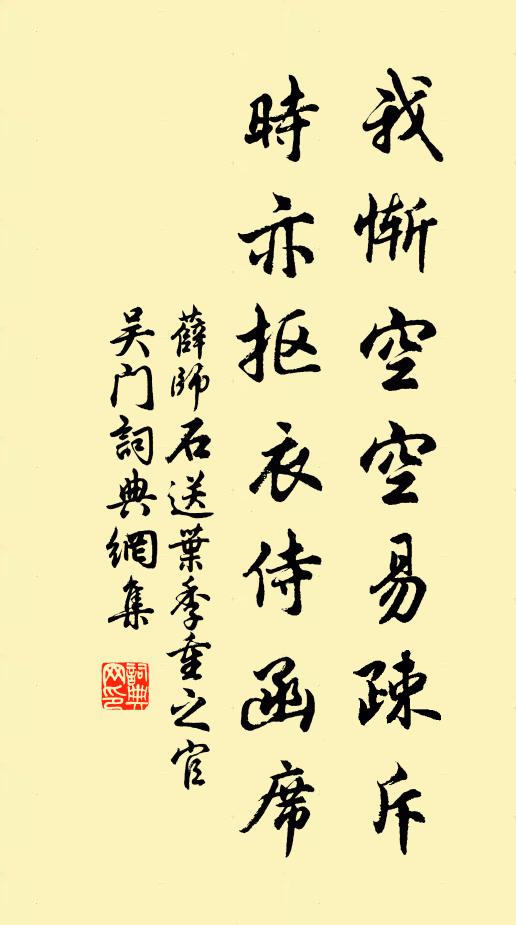 我惭空空易疎斥
時亦抠衣侍函席
薛師石送葉季重之官
吴门詞典網集
詞典網印